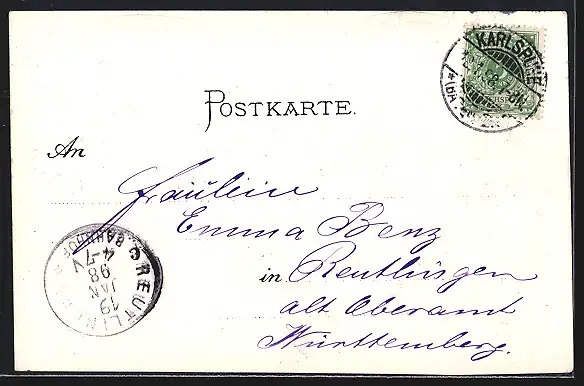 KARLSRUHE
POSTKARTE.
An
Fräulein
Emma Benz
in Reutlingen
alt Oberamt
Württemberg.
REUTLINGEN
BAHNHOF
19
JAN
98
4-7